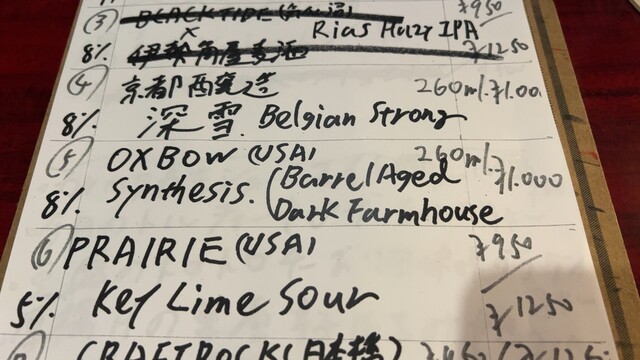 ③ BLACK TIDE ¥950
× Rias Hazy IPA
8% 伊勢角屋麦酒 ¥1250
④ 京都醸造 260ml.¥1.00
8% 深雪. Belgian Strong
⑤ OXBOW (USA) 260ml.¥1.000
8% Synthesis. (Barrel Aged
Dark Farmhouse
⑥ PRAIRIE (USA) ¥950
5% Key Lime Sour ¥1250
CRAFTROCK (日本橋)